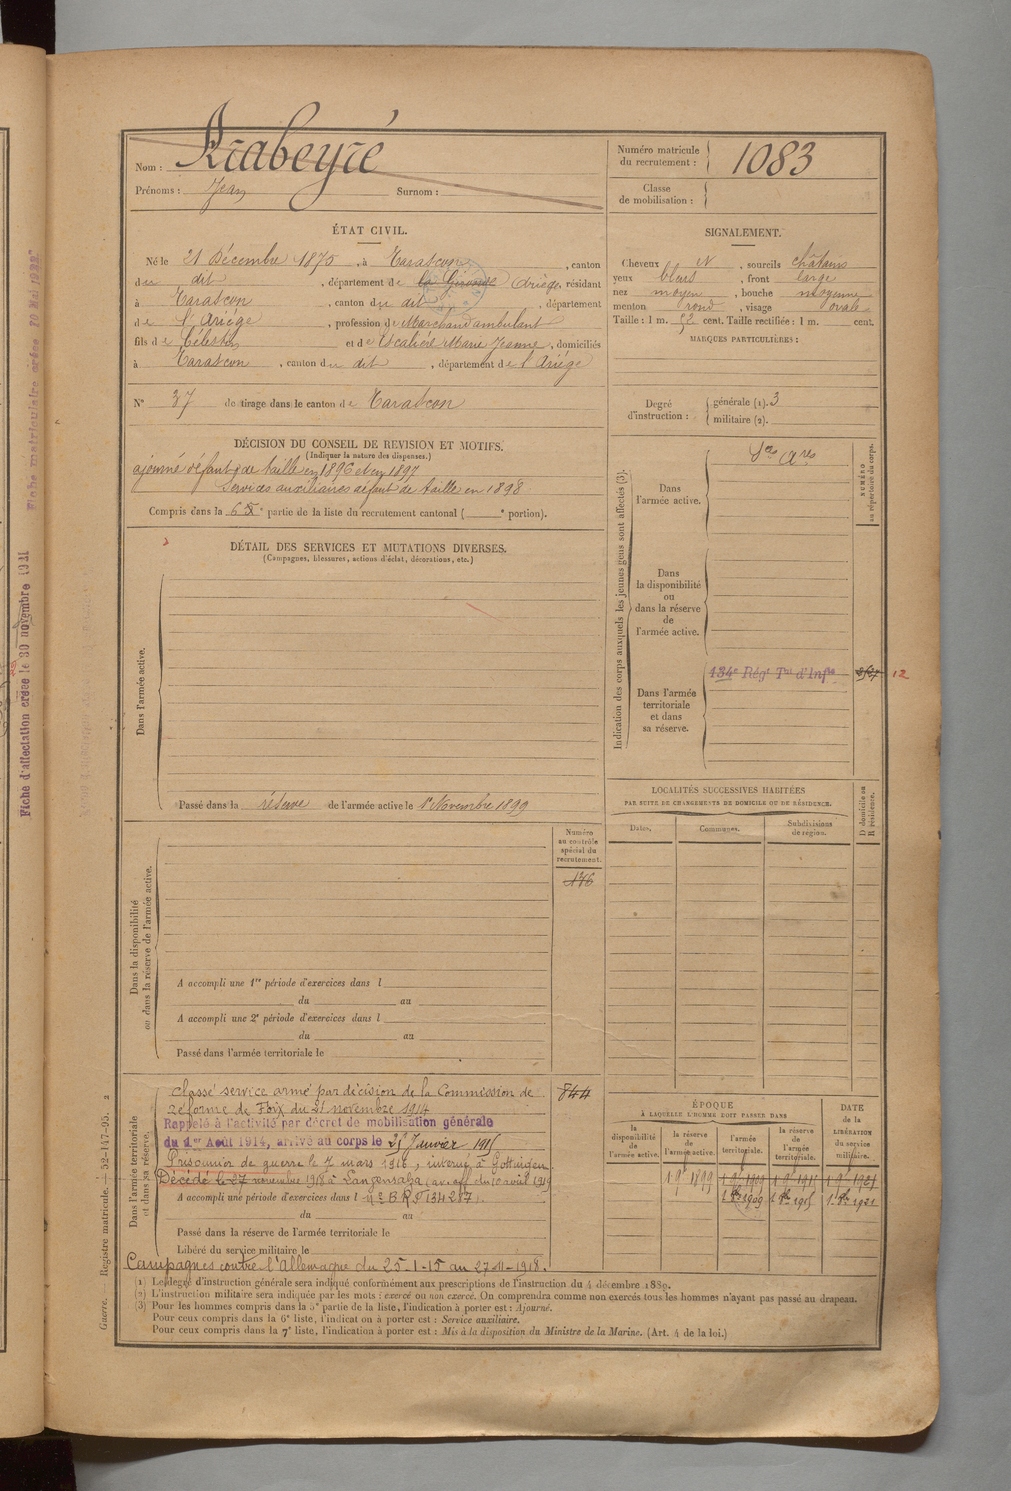 Fiche matriculaire créée 20 Mai 1922
Fiche d'affectation créée le 30 novembre 1921
Nom : Arabeyré
Prénoms : Jean Surnom :
Numéro matricule
du recrutement : 1083
Classe
de mobilisation :
ÉTAT CIVIL.
Né le 21 Décembre 1875, à Tarascon, canton
du dit, département de la Gironde Ariège, résidant
à Tarascon, canton du dit, département
de l'Ariège, profession de Marchand ambulant
fils de Célestin et de Escalière Marie Jeanne, domiciliés
à Tarascon, canton du dit, département de l'Ariège
N° 37 de tirage dans le canton de Tarascon
SIGNALEMENT.
Cheveux N, sourcils châtains
yeux bleus, front large
nez moyen, bouche moyenne
menton rond, visage ovale
Taille : 1 m. 52 cent. Taille rectifiée : 1 m. cent.
MARQUES PARTICULIÈRES :
Degré
d'instruction :
générale (1). 3
militaire (2).
DÉCISION DU CONSEIL DE REVISION ET MOTIFS.
(Indiquer la nature des dispenses.)
ajourné défaut de taille en 1896 et en 1897
Services auxiliaires défaut de taille en 1898
Compris dans la 6e partie de la liste du recrutement cantonal ( e portion).
DÉTAIL DES SERVICES ET MUTATIONS DIVERSES.
(Campagnes, blessures, actions d'éclat, décorations, etc.)
Dans l'armée active.
Passé dans la réserve de l'armée active le 1er Novembre 1899
Indication des corps auxquels les jeunes gens sont affectés (3).
NUMÉRO
au répertoire du corps.
Dans
l'armée active.
Ses Ares
Dans
la disponibilité
ou
dans la réserve
de
l'armée active.
Dans l'armée
territoriale
et dans
sa réserve.
134e Régt Tal d'Infie 12
LOCALITÉS SUCCESSIVES HABITÉES
PAR SUITE DE CHANGEMENTS DE DOMICILE OU DE RÉSIDENCE.
Dates.
Communes.
Subdivisions
de région.
D domicile ou
R résidence.
Dans la disponibilité
ou dans la réserve de l'armée active.
Numéro
au contrôle
spécial du
recrutement.
176
A accompli une 1re période d'exercices dans l
du au
A accompli une 2e période d'exercices dans l
du au
Passé dans l'armée territoriale le
Dans l'armée territoriale
et dans sa réserve.
844
Classé service armé par décision de la Commission de
réforme de Foix du 21 novembre 1914
Rappelé à l'activité par décret de mobilisation générale
du 1er Août 1914, arrivé au corps le 25 Janvier 1915
Prisonnier de guerre le 7 mars 1916, interné à Gottingen.
Décédé le 27 novembre 1918 à Langensalza (avis off. du 10 avril 1919
A accompli une période d'exercices dans l
du au
Passé dans la réserve de l'armée territoriale le
Libéré du service militaire le
Campagnes contre l'Allemagne du 25-1-15 au 27-11-1918.
ÉPOQUE
À LAQUELLE L'HOMME DOIT PASSER DANS
la
disponibilité
de l'armée
active.
la réserve
de
l'armée active.
l'armée
territoriale.
la réserve
de
l'armée
territoriale.
DATE
de la
LIBÉRATION
du service
militaire.
1 9bre 1899 1 9bre 1909 1 9bre 1915 1 9bre 1921
1 8bre 1909 1 8bre 1915 1 8bre 1921
(1) Le degré d'instruction générale sera indiqué conformément aux prescriptions de l'instruction du 4 décembre 1889.
(2) L'instruction militaire sera indiquée par les mots : exercé ou non exercé. On comprendra comme non exercés tous les hommes n'ayant pas passé au drapeau.
(3) Pour les hommes compris dans la 5e partie de la liste, l'indication à porter est : Ajourné.
Pour ceux compris dans la 6e liste, l'indication à porter est : Service auxiliaire.
Pour ceux compris dans la 7e liste, l'indication à porter est : Mis à la disposition du Ministre de la Marine. (Art. 4 de la loi.)
Guerre. Registre matricule. — 52-147-95. 2